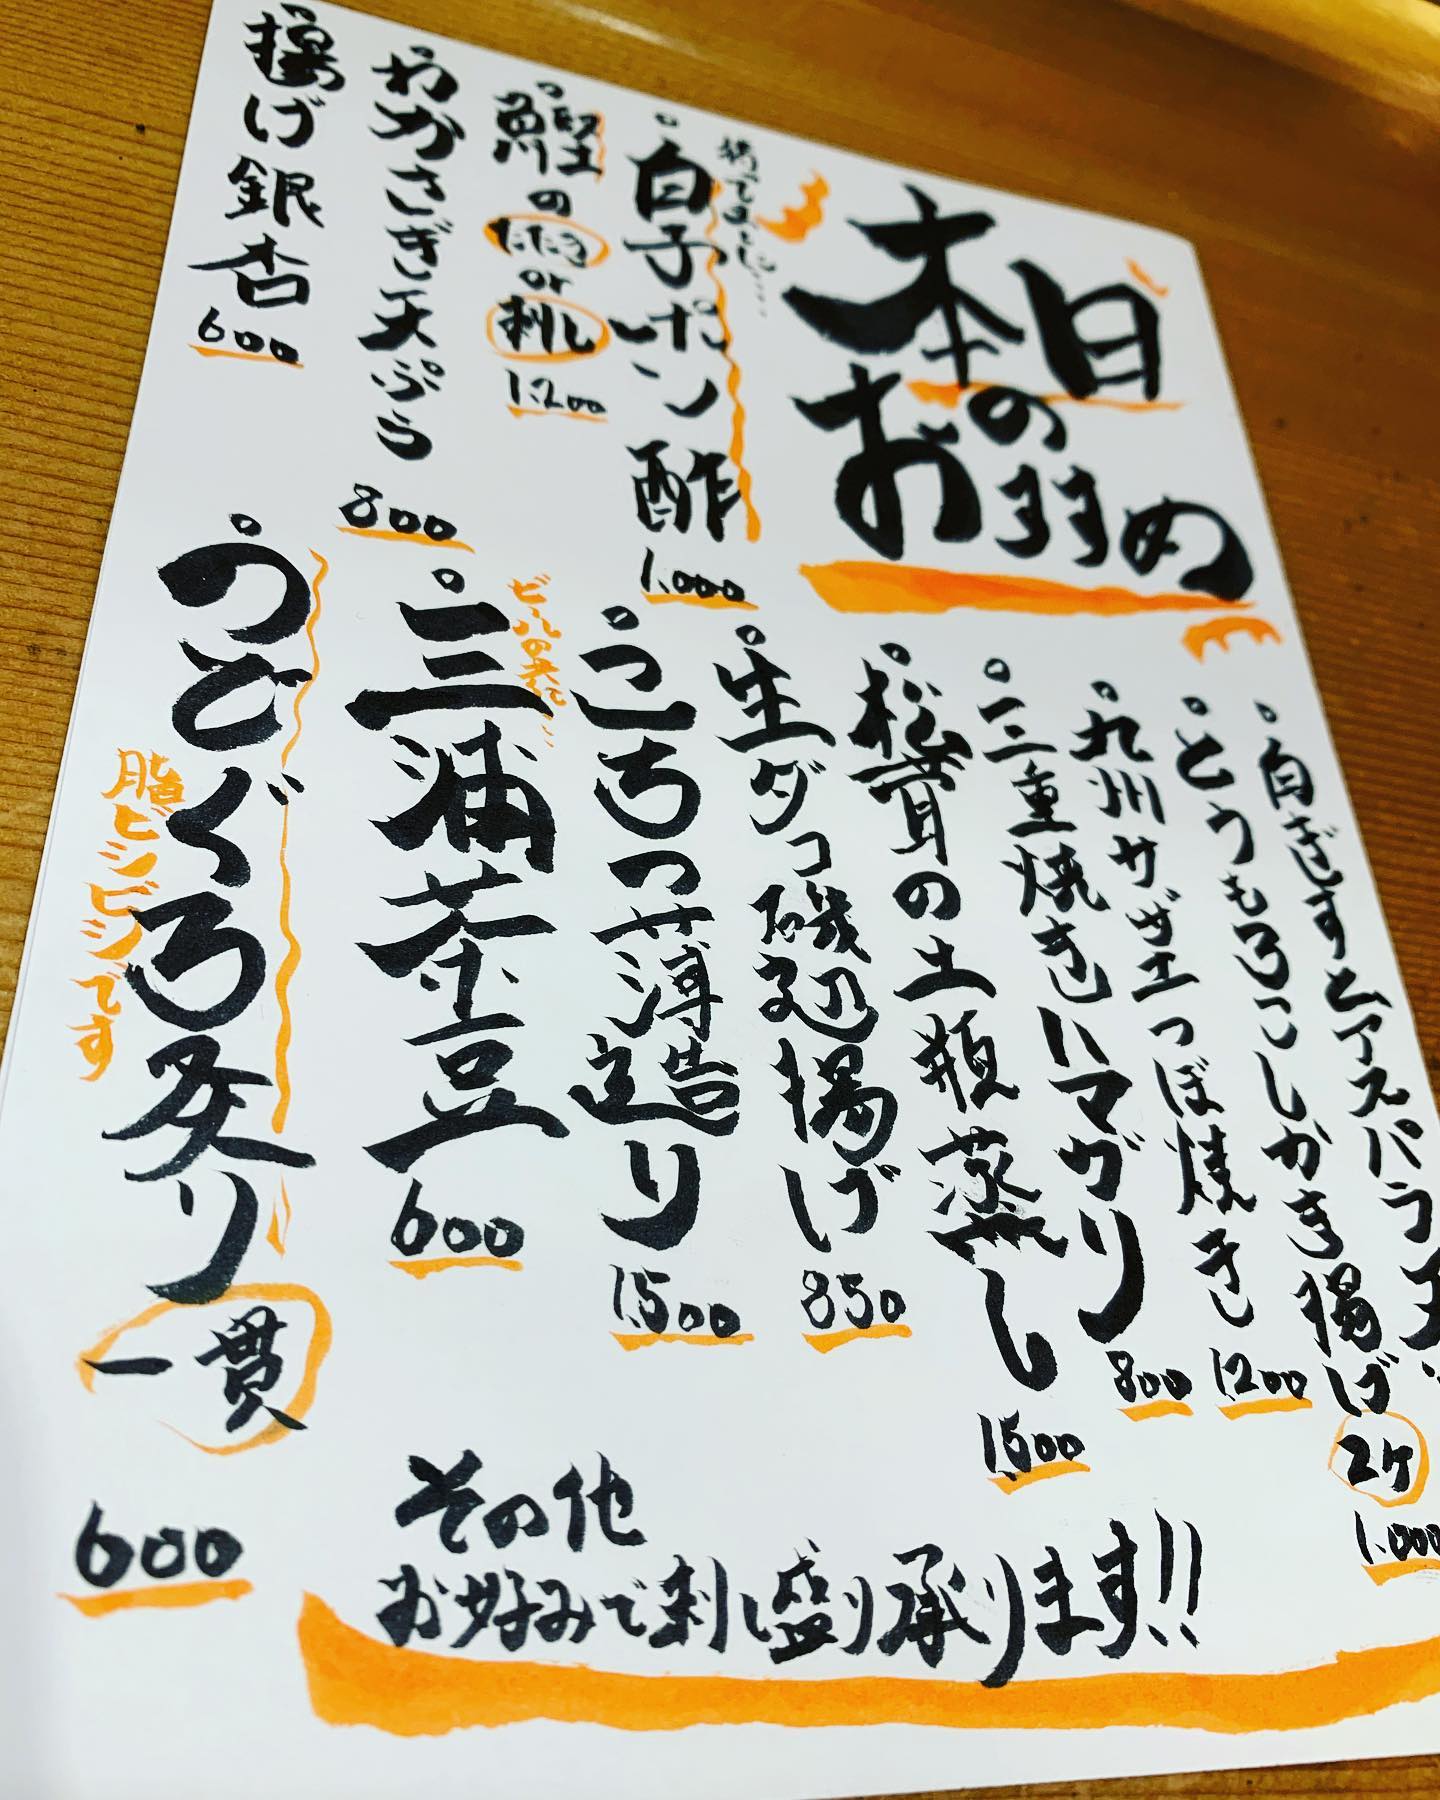 本日
の
おすすめ
待ってました....
白子ポン酢
1.000
鰹のたたきor刺し
1.200
わかさぎ天ぷら
800
揚げ銀杏
600
白ぎすとアスパラ天
1.000
とうもろこしかき揚げ
2ケ
九州サザエつぼ焼き
1200
三重焼きハマグリ
800
松茸の土瓶蒸し
1500
生ダコ磯辺揚げ
850
こち薄造り
1500
ビールのお供に
三浦茶豆
600
のどぐろ炙り
脂ビシビシです
一貫
600
その他
お好みで刺し盛り承ります!!